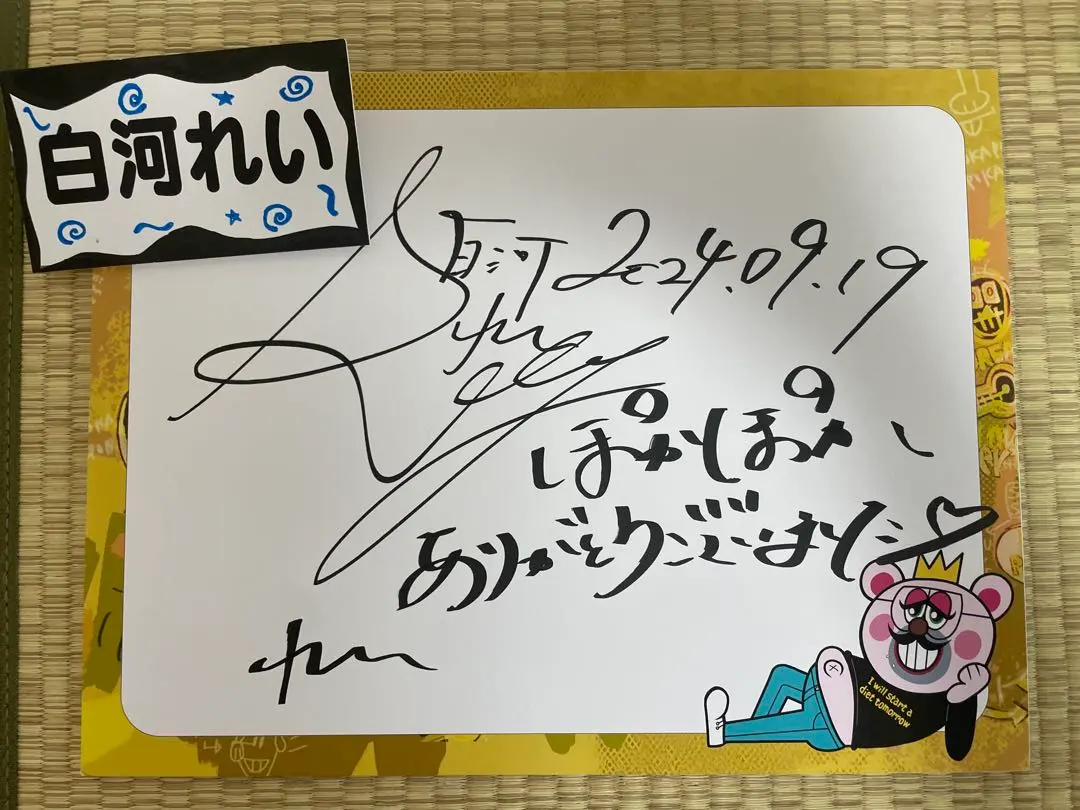 白河れい
白河 2024.09.19
れい
ぽかぽか
ありがとうございました♡
れい
I will start a
diet tomorrow